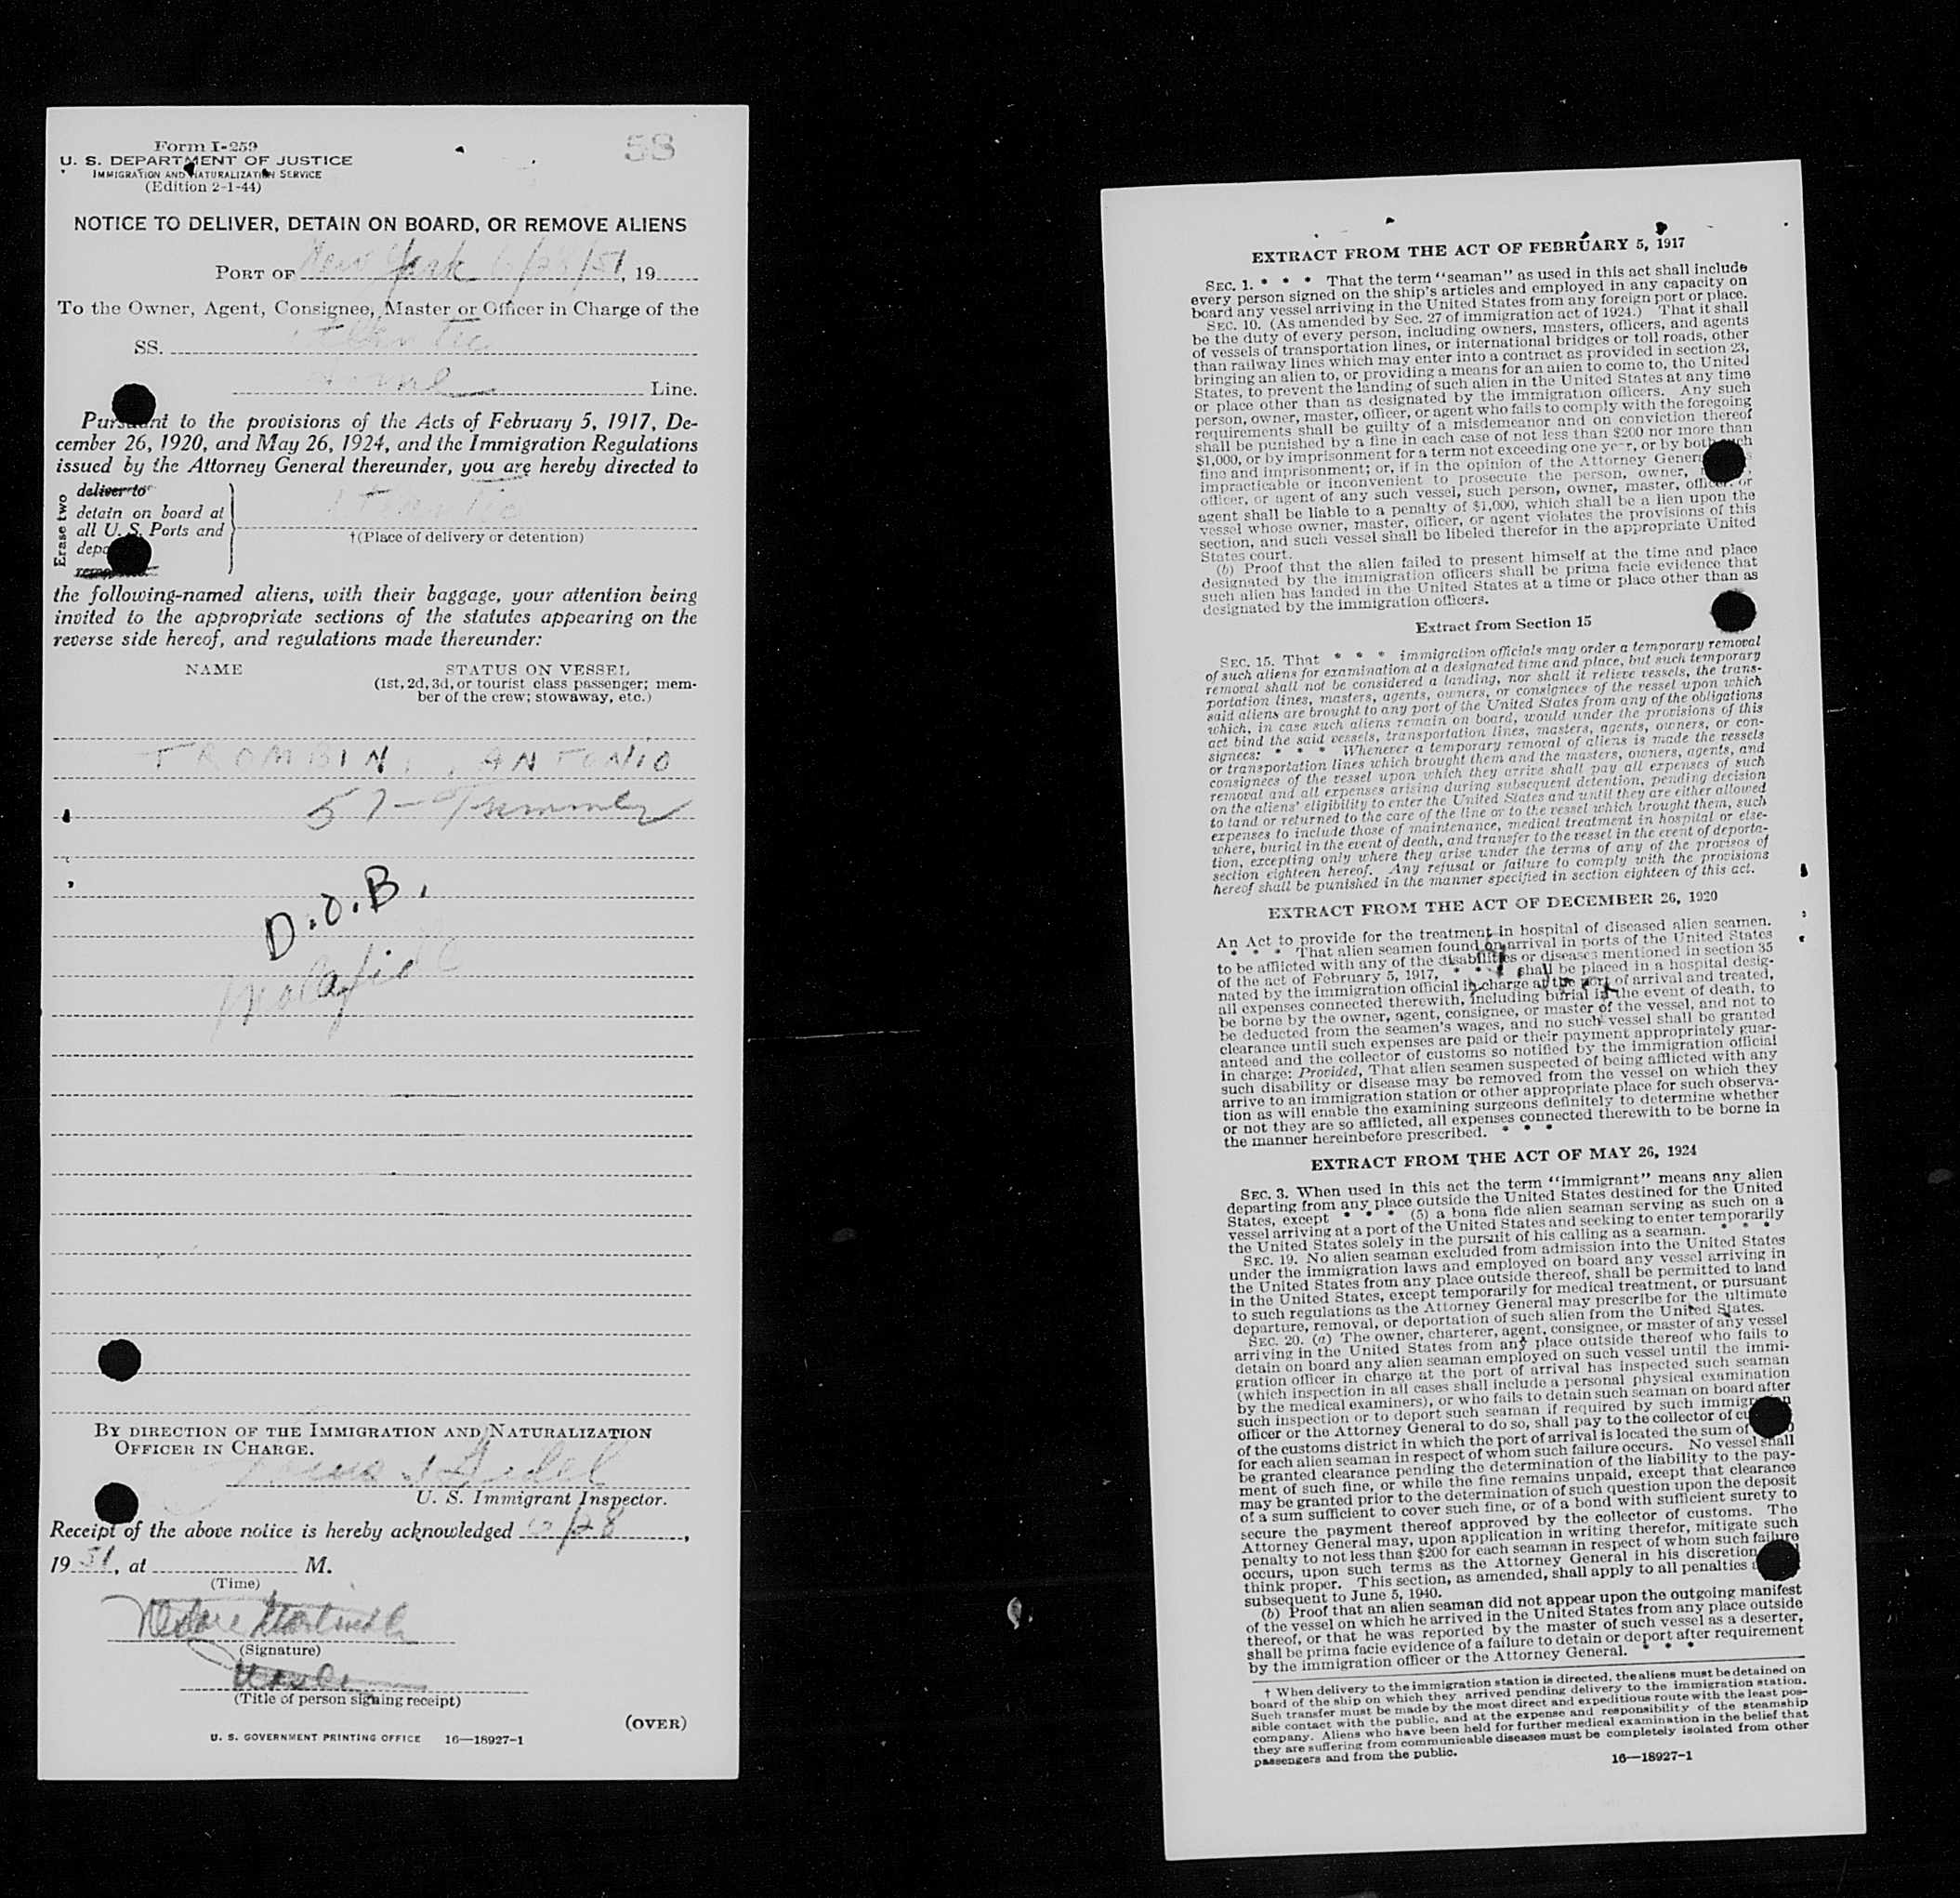 Form I-259
58
U. S. DEPARTMENT OF JUSTICE
IMMIGRATION AND NATURALIZATION SERVICE
(Edition 2-1-44)
NOTICE TO DELIVER, DETAIN ON BOARD, OR REMOVE ALIENS
PORT OF New York 6/28/51, 19
To the Owner, Agent, Consignee, Master or Officer in Charge of the
SS. Atlantic
Home Line.
Pursuant to the provisions of the Acts of February 5, 1917, De-
cember 26, 1920, and May 26, 1924, and the Immigration Regulations
issued by the Attorney General thereunder, you are hereby directed to
Erase two
deliver to
detain on board at
all U. S. Ports and
Atlantic
†(Place of delivery or detention)
the following-named aliens, with their baggage, your attention being
invited to the appropriate sections of the statutes appearing on the
reverse side hereof, and regulations made thereunder:
NAME
STATUS ON VESSEL
(1st, 2d, 3d, or tourist class passenger; mem-
ber of the crew; stowaway, etc.)
TROMBINI, ANTONIO
57-
D.O.B.
Malafide
BY DIRECTION OF THE IMMIGRATION AND NATURALIZATION
OFFICER IN CHARGE.
U. S. Immigrant Inspector.
Receipt of the above notice is hereby acknowledged 6/28,
1951, at M.
(Time)
(Signature)
(Title of person signing receipt)
(OVER)
U. S. GOVERNMENT PRINTING OFFICE 16—18927-1
EXTRACT FROM THE ACT OF FEBRUARY 5, 1917
SEC. 1. * * * That the term "seaman" as used in this act shall include
every person signed on the ship's articles and employed in any capacity on
board any vessel arriving in the United States from any foreign port or place.
SEC. 10. (As amended by Sec. 27 of immigration act of 1924.) That it shall
be the duty of every person, including owners, masters, officers, and agents
of vessels of transportation lines, or international bridges or toll roads, other
than railway lines which may enter into a contract as provided in section 23,
bringing an alien to, or providing a means for an alien to come to, the United
States, to prevent the landing of such alien in the United States at any time
or place other than as designated by the immigration officers. Any such
person, owner, master, officer, or agent who fails to comply with the foregoing
requirements shall be guilty of a misdemeanor and on conviction thereof
shall be punished by a fine in each case of not less than $200 nor more than
$1,000, or by imprisonment for a term not exceeding one year, or by both such
fine and imprisonment; or, if in the opinion of the Attorney General
impracticable or inconvenient to prosecute the person, owner,
officer, or agent of any such vessel, such person, owner, master, officer, or
agent shall be liable to a penalty of $1,000, which shall be a lien upon the
vessel whose owner, master, officer, or agent violates the provisions of this
section, and such vessel shall be libeled therefor in the appropriate United
States court.
(b) Proof that the alien failed to present himself at the time and place
designated by the immigration officers shall be prima facie evidence that
such alien has landed in the United States at a time or place other than as
designated by the immigration officers.
Extract from Section 15
SEC. 15. That * * * immigration officials may order a temporary removal
of such aliens for examination at a designated time and place, but such temporary
removal shall not be considered a landing, nor shall it relieve vessels, the trans-
portation lines, masters, agents, owners, or consignees of the vessel upon which
said aliens are brought to any port of the United States from any of the obligations
which, in case such aliens remain on board, would under the provisions of this
act bind the said vessels, transportation lines, masters, agents, owners, or con-
signees: * * * Whenever a temporary removal of aliens is made the vessels
or transportation lines which brought them and the masters, owners, agents, and
consignees of the vessel upon which they arrive shall pay all expenses of such
removal and all expenses arising during subsequent detention, pending decision
on the aliens' eligibility to enter the United States and until they are either allowed
to land or returned to the care of the line or to the vessel which brought them, such
expenses to include those of maintenance, medical treatment in hospital or else-
where, burial in the event of death, and transfer to the vessel in the event of deporta-
tion, excepting only where they arise under the terms of any of the provisos of
section eighteen hereof. Any refusal or failure to comply with the provisions
hereof shall be punished in the manner specified in section eighteen of this act.
EXTRACT FROM THE ACT OF DECEMBER 26, 1920
An Act to provide for the treatment in hospital of diseased alien seamen.
* * * That alien seamen found on arrival in ports of the United States
to be afflicted with any of the disabilities or diseases mentioned in section 35
of the act of February 5, 1917, * * * shall be placed in a hospital desig-
nated by the immigration official in charge at the port of arrival and treated,
all expenses connected therewith, including burial in the event of death, to
be borne by the owner, agent, consignee, or master of the vessel, and not to
be deducted from the seamen's wages, and no such vessel shall be granted
clearance until such expenses are paid or their payment appropriately guar-
anteed and the collector of customs so notified by the immigration official
in charge: Provided, That alien seamen suspected of being afflicted with any
such disability or disease may be removed from the vessel on which they
arrive to an immigration station or other appropriate place for such observa-
tion as will enable the examining surgeons definitely to determine whether
or not they are so afflicted, all expenses connected therewith to be borne in
the manner hereinbefore prescribed. * * *
EXTRACT FROM THE ACT OF MAY 26, 1924
SEC. 3. When used in this act the term "immigrant" means any alien
departing from any place outside the United States destined for the United
States, except * * * (5) a bona fide alien seaman serving as such on a
vessel arriving at a port of the United States and seeking to enter temporarily
the United States solely in the pursuit of his calling as a seaman. * * *
SEC. 19. No alien seaman excluded from admission into the United States
under the immigration laws and employed on board any vessel arriving in
the United States from any place outside thereof, shall be permitted to land
in the United States, except temporarily for medical treatment, or pursuant
to such regulations as the Attorney General may prescribe for the ultimate
departure, removal, or deportation of such alien from the United States.
SEC. 20. (a) The owner, charterer, agent, consignee, or master of any vessel
arriving in the United States from any place outside thereof who fails to
detain on board any alien seaman employed on such vessel until the immi-
gration officer in charge at the port of arrival has inspected such seaman
(which inspection in all cases shall include a personal physical examination
by the medical examiners), or who fails to detain such seaman on board after
such inspection or to deport such seaman if required by such immigration
officer or the Attorney General to do so, shall pay to the collector of
of the customs district in which the port of arrival is located the sum of
for each alien seaman in respect of whom such failure occurs. No vessel shall
be granted clearance pending the determination of the liability to the pay-
ment of such fine, or while the fine remains unpaid, except that clearance
may be granted prior to the determination of such question upon the deposit
of a sum sufficient to cover such fine, or of a bond with sufficient surety to
secure the payment thereof approved by the collector of customs. The
Attorney General may, upon application in writing therefor, mitigate such
penalty to not less than $200 for each seaman in respect of whom such failure
occurs, upon such terms as the Attorney General in his discretion
think proper. This section, as amended, shall apply to all penalties
subsequent to June 5, 1940.
(b) Proof that an alien seaman did not appear upon the outgoing manifest
of the vessel on which he arrived in the United States from any place outside
thereof, or that he was reported by the master of such vessel as a deserter,
shall be prima facie evidence of a failure to detain or deport after requirement
by the immigration officer or the Attorney General. * * *
† When delivery to the immigration station is directed, the aliens must be detained on
board of the ship on which they arrived pending delivery to the immigration station.
Such transfer must be made by the most direct and expeditious route with the least pos-
sible contact with the public, and at the expense and responsibility of the steamship
company. Aliens who have been held for further medical examination in the belief that
they are suffering from communicable diseases must be completely isolated from other
passengers and from the public.
16—18927-1